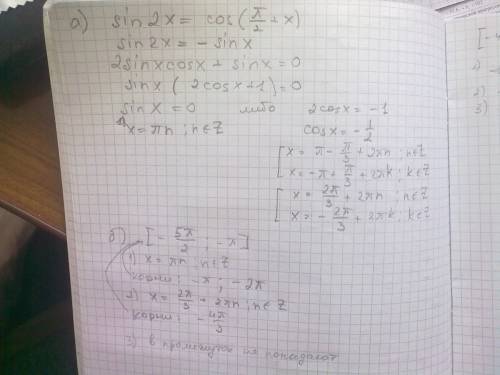 а) sin2x = cos(π/2 + x)
sin2x = - sinx
2sinxcosx + sinx = 0
sinx ( 2cosx + 1) = 0
sinx = 0 либо 2cosx = -1
x = πn ; n∈Z cosx = - 1/2
[ x = π - π/3 + 2πn ; n∈Z
[ x = -π + π/3 + 2πk ; k∈Z
[ x = 2π/3 + 2πn ; n∈Z
[ x = - 2π/3 + 2πk ; k∈Z
б) [ - 5π/2 ; -π ]
1) x = πn ; n∈Z
корни : -π ; -2π
2) x = 2π/3 + 2πn ; n∈Z
корни : - 4π/3
3) в промежуток не попадают
[ - 4
1)
2)
3)